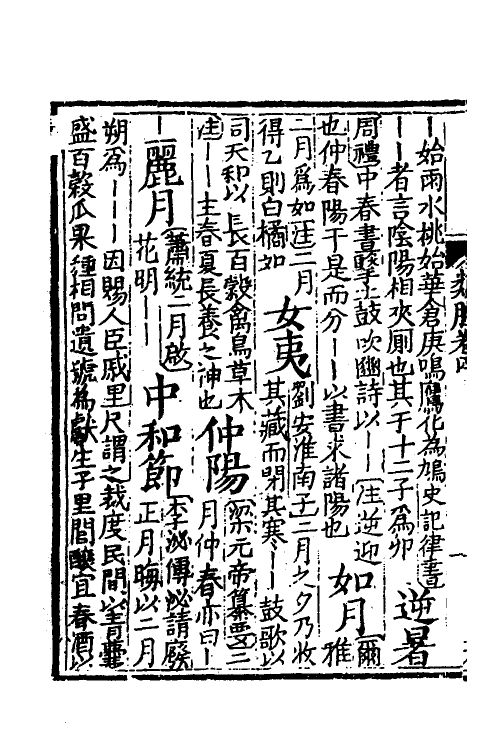 ｜始雨水桃始華倉庚鳴鷹化為鳩史記律書
｜｜者言陰陽相夾厠也其于十二子為卯 逆暑
周禮中春晝擊土鼓吹豳詩以｜｜注逆迎
也仲春陽于是而分｜｜以晝求諸陽也 如月 爾雅
二月為如注二月
得乙則白橘如 女夷 劉安淮南子二月之夕乃收
其藏而閉其寒｜｜鼓歌以
司天和以長百穀禽鳥草木
注｜｜主春夏長養之神也 仲陽 梁元帝纂要二
月仲春亦曰｜
｜ 麗月 蕭統二月啟
花明｜｜ 中和節 李泌傳泌請廢
正月晦以二月
朔為｜｜｜因賜人臣戚里尺謂之裁度民間以青囊
盛百穀瓜果種相問遺號為獻生子里閭釀宜春酒以